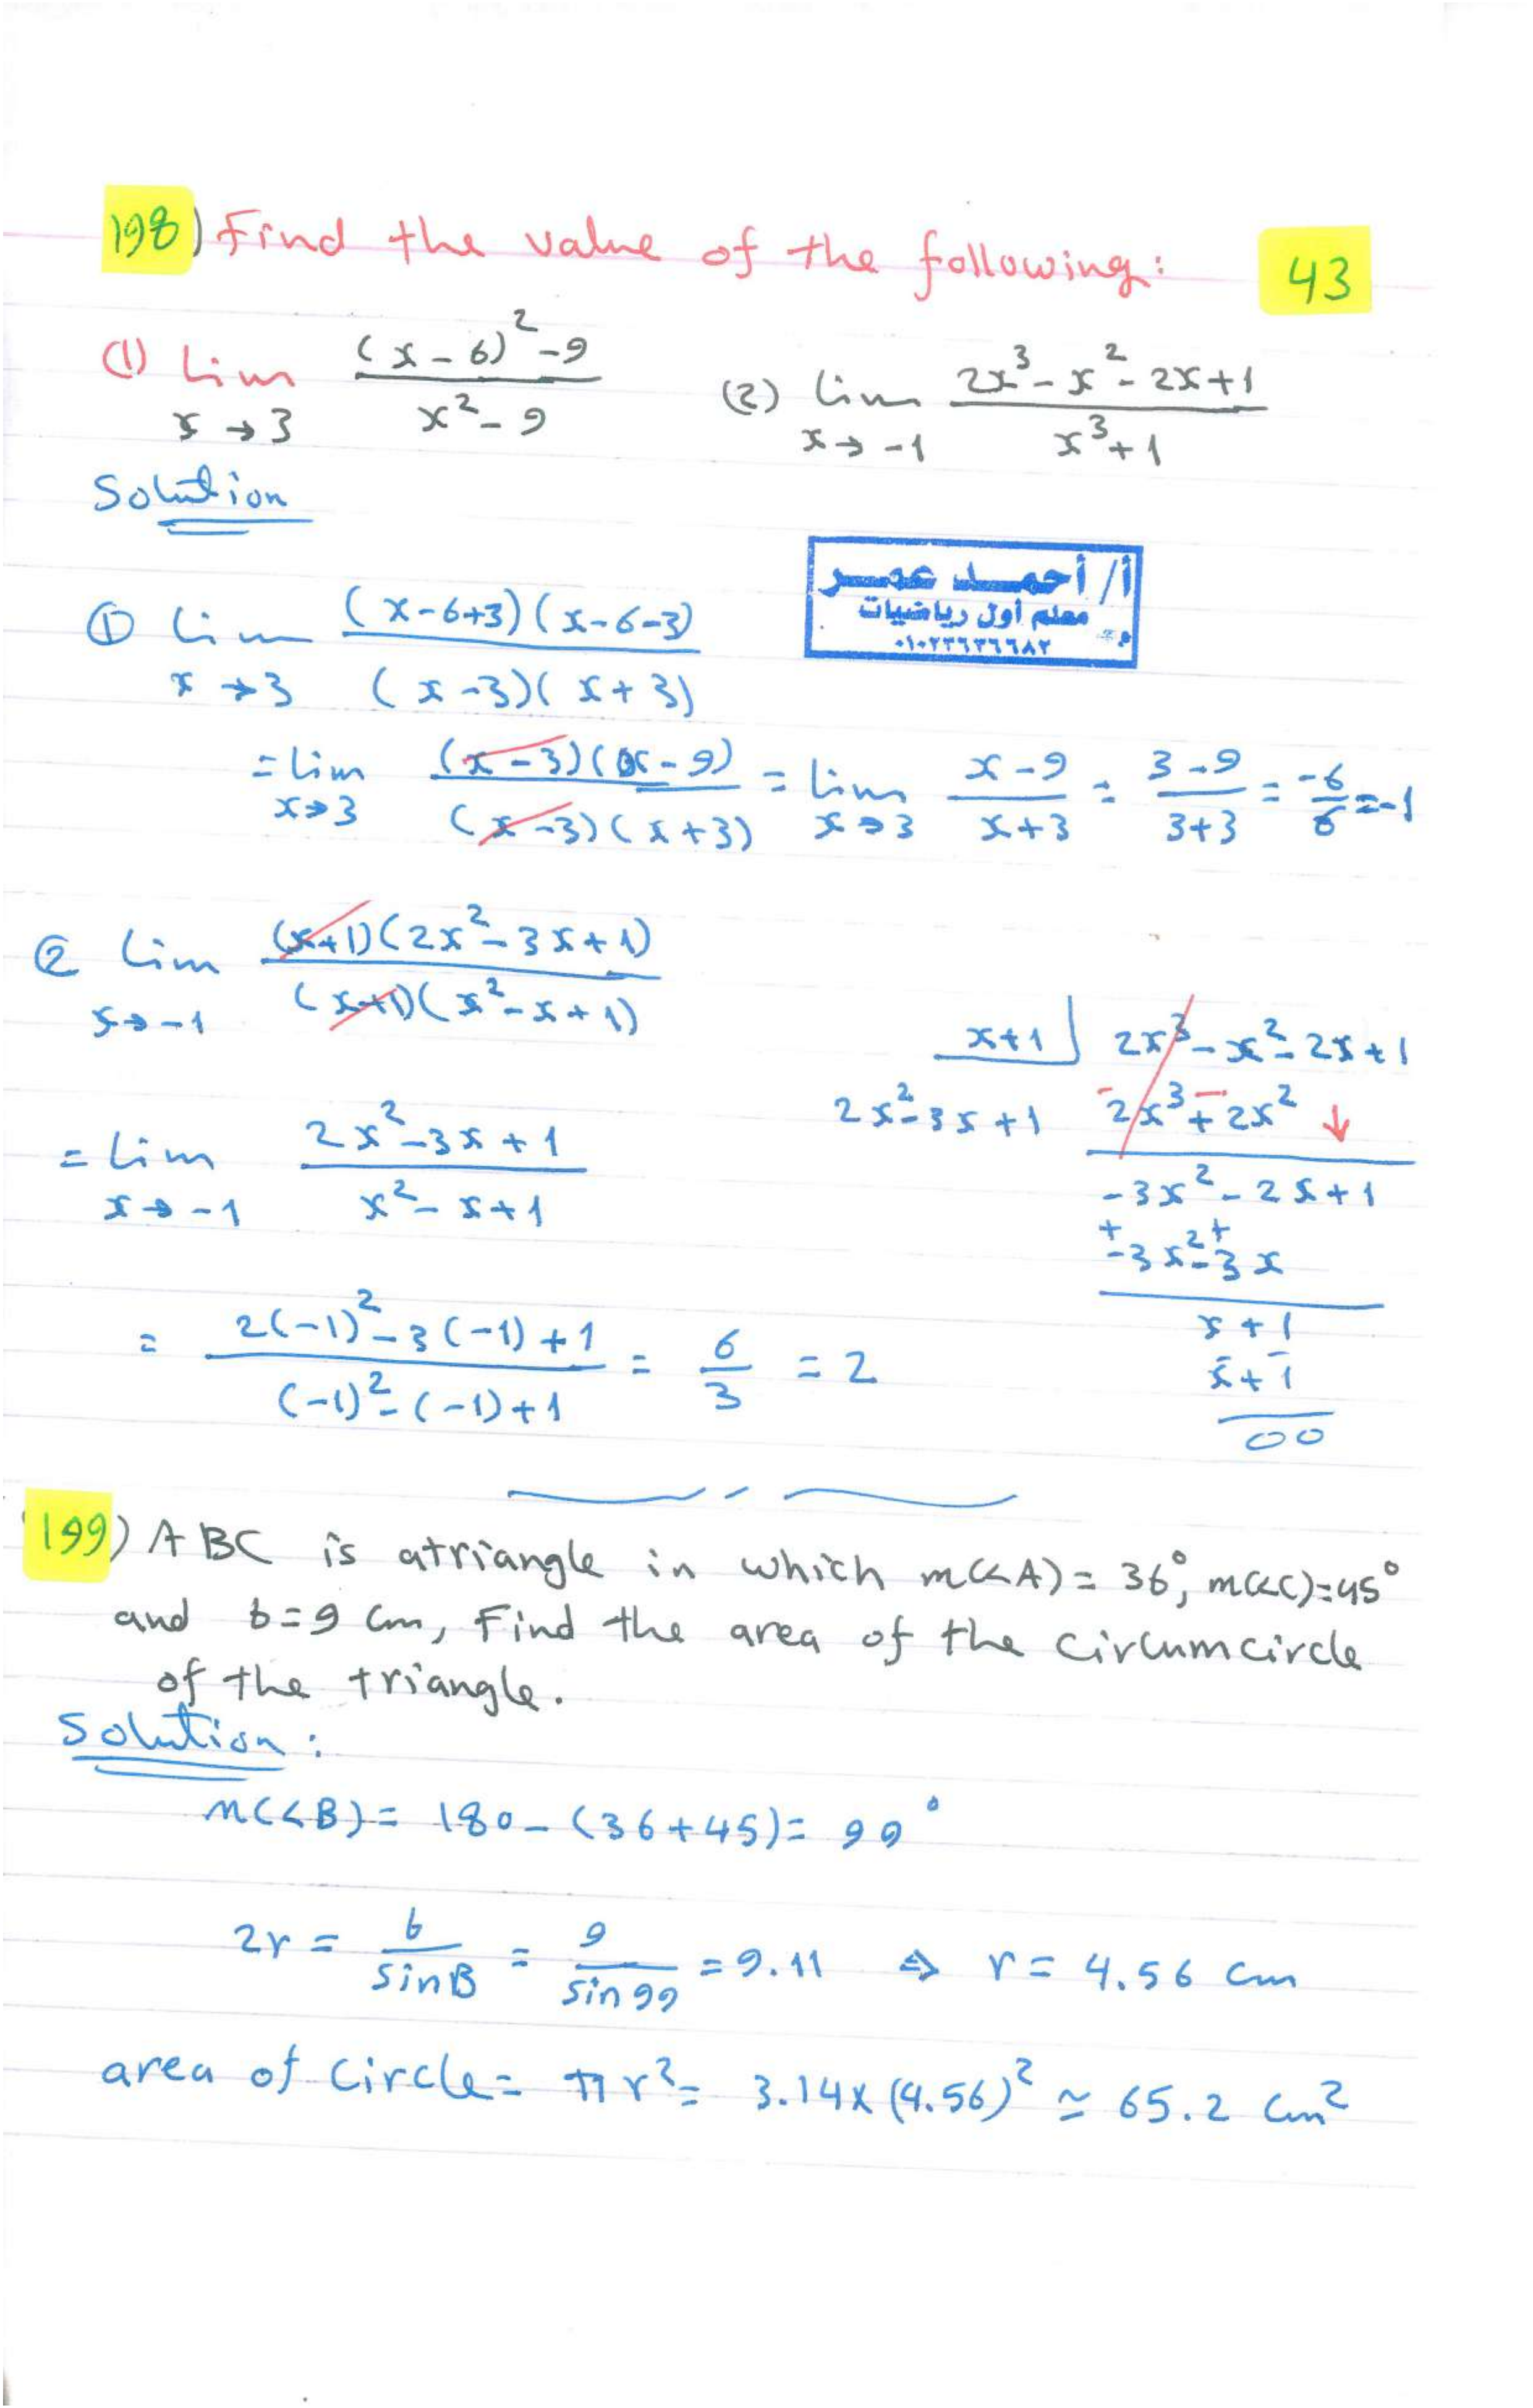 198) Find the value of the following: 43
(1) Lim x→3 ((x-6)² -9)/(x² - 9) (2) lim x→-1 (2x³ - x² - 2x+1)/(x³+1)
Solution
أ/ أحمد عمر
معلم أول رياضيات
٠١٠٢٢٦٣٦٦٨٢
① Lim x→3 ((x-6+3)(x-6-3))/((x-3)(x+3))
= Lim x→3 ((x-3)(x-9))/((x-3)(x+3)) = Lim x→3 (x-9)/(x+3) = (3-9)/(3+3) = -6/6 = -1
② Lim x→-1 ((x+1)(2x²-3x+1))/((x+1)(x²-x+1))
x+1 | 2x³ - x² - 2x + 1
2x²-3x+1 2x³ + 2x² ↓
= Lim x→-1 (2x²-3x+1)/(x²-x+1)
-3x² - 2x + 1
-3x² - 3x
= (2(-1)² - 3(-1) + 1)/((-1)² - (-1) + 1) = 6/3 = 2
x + 1
x + 1
00
199) ABC is atriangle in which m(<A) = 36°, m(<C)=45°
and b=9 cm, Find the area of the circumcircle
of the triangle.
Solution:
m(<B) = 180 - (36+45) = 99°
2r = b/sinB = 9/sin99 = 9.11 ⇒ r = 4.56 cm
area of circle = πr² = 3.14x(4.56)² ≃ 65.2 cm²